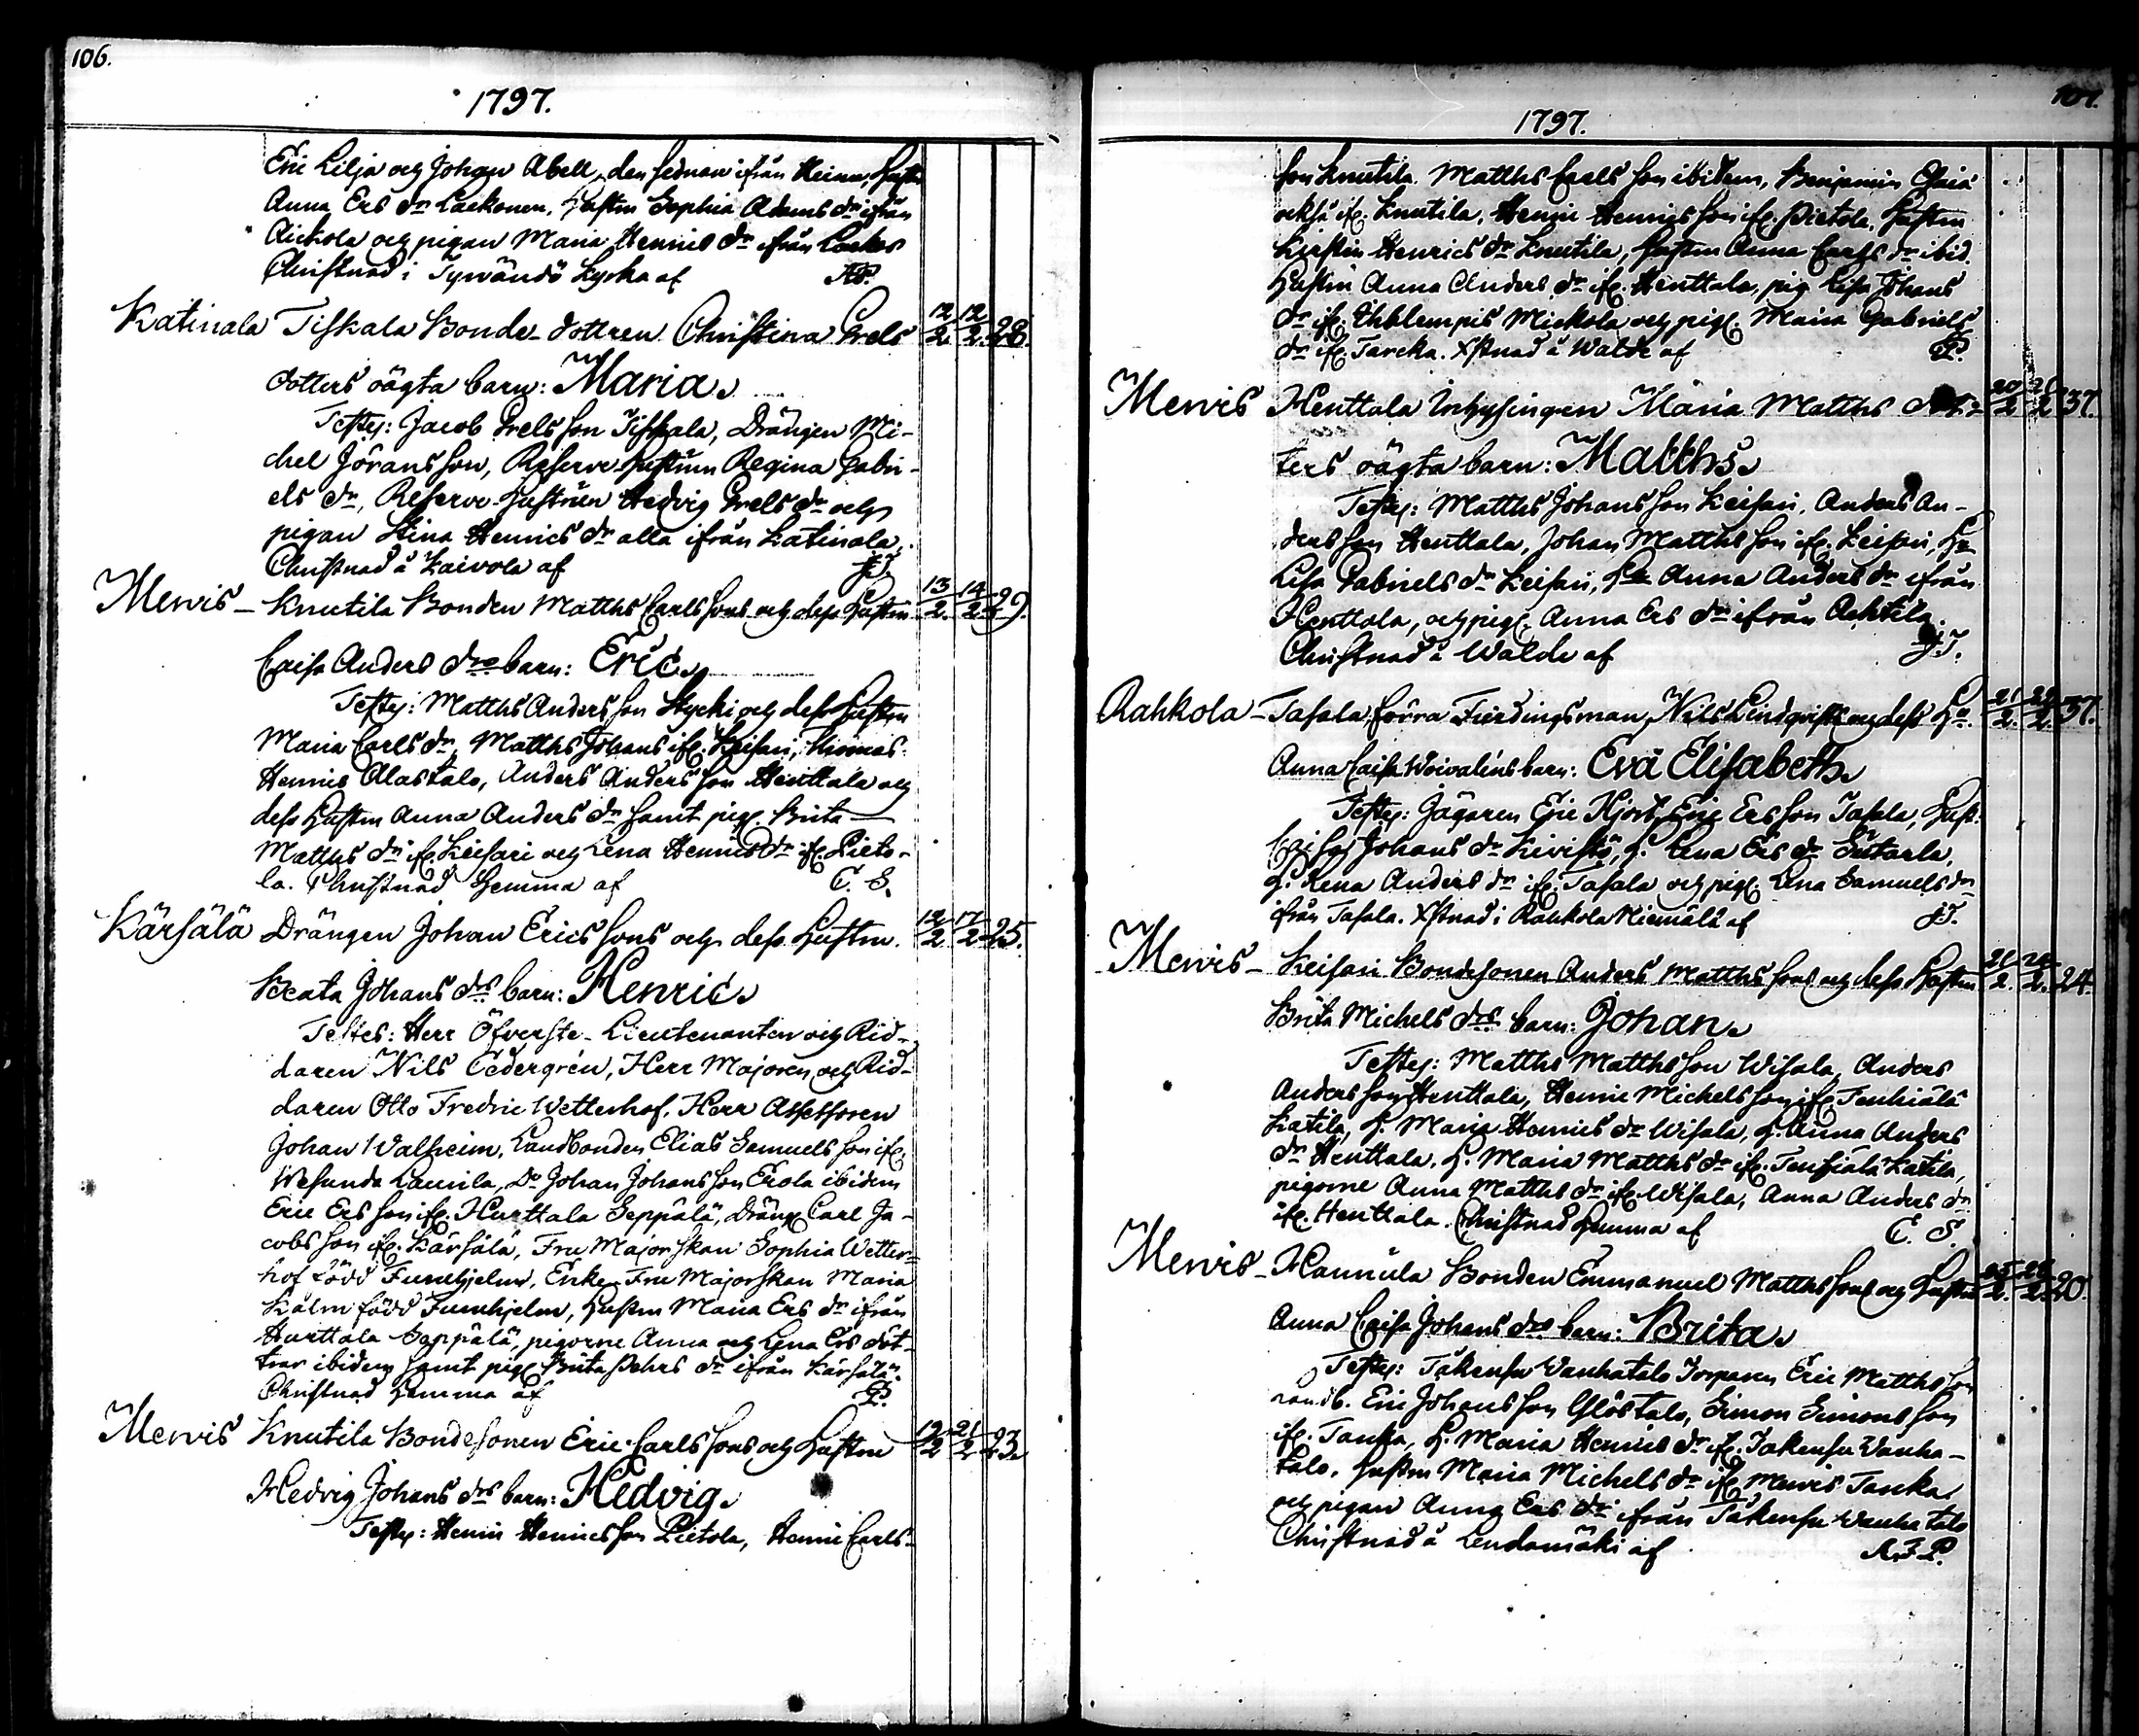 106.
1797.
Eric Lilja och Johan Abell, den sednare ifrån Heinu, Hustr.
Anna Ers dr Laekonen, Hustrun Sophia Adams dr ifrån
Aickola och pigan Maria Henrics dr ifrån
Christnad i Tyrwändö Kyrka af
Katinala Tiskala Bonde-dottren Christina Prels 12/2. 12/2. 28.
dotters oägta barn: Maria.
Testes: Jacob Prels son Tiskala, Drängen Mi-
chel Jörans son, Reserve hustrun Regina Gabri-
els dr, Reserve-hustrun Hedvig Prels dr och
pigan Stina Henrics dr alla ifrån Katinala.
Christnad å Kaivola af J.T.
Merwis - Knutila Bonden Matths Carls sons och dess Hustru 13/2. 14/2. 29.
Caisa Anders drs barn: Eric.
Testes: Matths Anders son Stycki och dess Hustru
Maria Carls dr, Matths Johans ifr. Keisari, Thomas
Henrics Alastalo, Anders Anders son Henttala och
dess Hustru Anna Anders dr samt pig. Brita
Matths dr ifr. Keisari och Lena Henrics dr ifr. Pieto-
la. Christnad hemma af C. S.
Kärsälä Drängen Johan Erics sons och dess Hustru. 12/2 17/2 25.
Beata Johans drs barn: Henric.
Testes: Herr Öfverste-Lieutenanten och Rid-
daren Nils Cedergrén, Herr Majoren och Rid-
daren Otto Fredric Wetterhof, Herr Assessoren
Johan Walheim, Landbonden Elias Samuels son ifr.
Wesunda Laurila, Do Johan Johans son Erola ibidem
Eric Ers son ifr. Hurttala Seppälä, Dräng Carl Ja-
cobs son ifr. Kärsälä, Fru Majorskan Sophia Wetter-
hof född Furuhjelm, Enke-Fru Majorskan Maria
Kalm född Furuhjelm, Hustrun Maria Ers dr ifrån
Hurttala Seppälä, pigorne Anna och Lena Ers döt-
trar ibidem samt pig. Brita Pehrs dr ifrån Kärsälä.
Christnad hemma af
Merwis Knutila Bondesonen Eric Carls sons och Hustru 19/2 21/2 23.
Hedvig Johans drs barn: Hedvig.
Testes: Henric Henrics son Pietola, Henric Carls-
107.
1797.
son Knutila. Matths Carls son ibidem, Benjamin
också ifr. Knutila, Henric Henrics son ifr. Pietola, Hustrun
Kirstin Henrics dr Knutila, hustrun Anna Carls dr ibid.
Hustrun Anna Anders dr ifr. Henttala, pig. Lisa Johans
dr ifr. Mickola och pig. Maria Gabriels
dr ifr. Tarcka. Xstnad å Walde af
Merwis Henttala Inhysingen Maria Matths dot- 20/2 21/2 37.
ters oägta barn: Matths.
Testes: Matths Johans son Keisari, Anders An-
ders son Henttala, Johan Matths son ifr. Keisari, Hu
Lisa Gabriels dr Keisari, Anna Anders dr ifrån
Henttala, och pig. Anna Ers dr ifrån Ahtila.
Christnad å Walde af J.T.
Rahkola - Tasala förra Fierdingsman Nils Lindqvists och dess Hu. 21/2. 22/2. 37.
Anna Caisa Woivalins barn: Eva Elisabeth.
Testes: Jägaren Eric Hjort, Eric Ers son Tasala, Hust.
Caisa Johans dr Kivistö, H. Lena Ers dr Sutarla,
H. Lena Anders dr ifr. Tasala och pig. Lena Samuels dr
ifrån Tasala. Xstnad i Rahkola Niemälä af J.T.
Merwis - Keisari Bondesonen Anders Matths sons och dess Hustru 21/2. 24/2. 24.
Brita Michels drs barn: Johan.
Testes: Matths Matths son Wisala, Anders
Anders son Henttala, Henric Michels son ifr. Tenhiälä
Katila, H. Maria Henrics dr Wisala, H. Anna Anders
dr Henttala, H. Maria Matths dr ifr. Tenhiälä Katila,
pigorne Anna Matths dr ifr. Wisala, Anna Anders dr
ifr. Henttala. Christnad hemma af C. S.
Merwis - Hannula Bonden Emmanuel Matths sons och Hustru 25/2. 26/2. 20.
Anna Caisa Johans drs barn: Brita.
Testes: Takensu Vanhatalo Torparen Eric Matths son
Landb. Eric Johans son Ylöstalo, Simon Simons son
ifr. Tanka, H. Maria Henrics dr ifr. Takensu Vanha-
talo, hustrun Maria Michels dr ifr. Merwis Tanka
och pigan Anna Ers dr ifrån Takensu Vanhatalo
Christnad å Lendamäki af